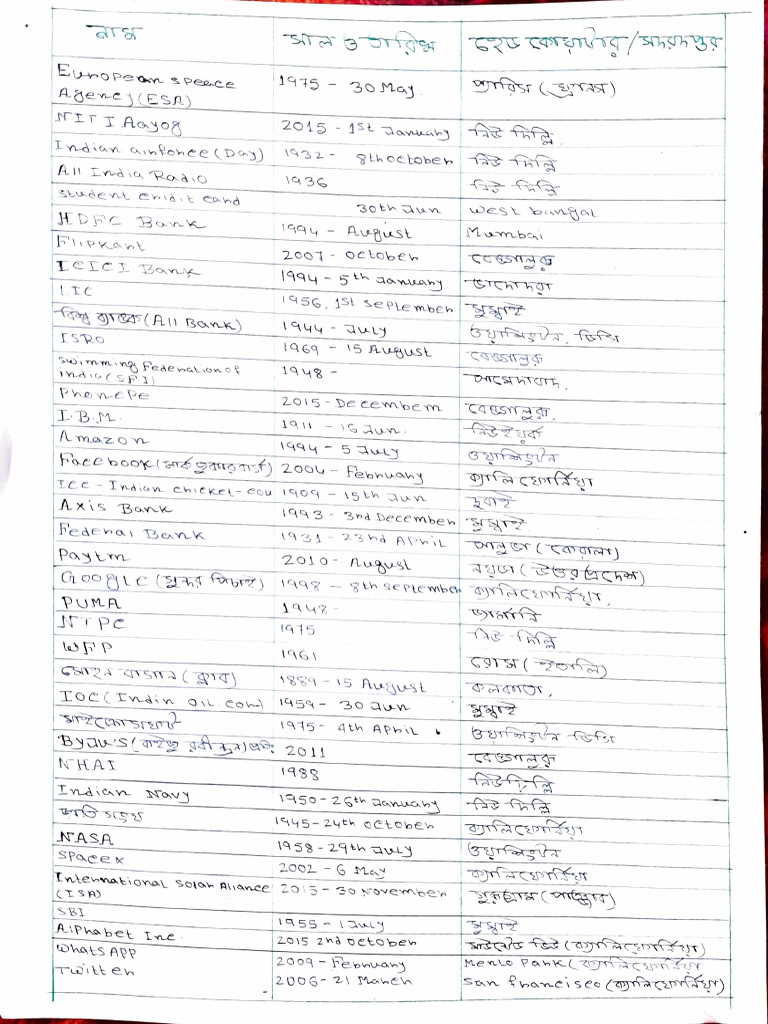 নাম সাল ও তারিখ হেড কোয়ার্টার/সদরদপ্তর
European speace Agency(ESA) 1975 - 30 May. প্যারিস (ফ্রান্স)
NITI Aayog 2015 - 1st January নিউ দিল্লি.
Indian ainfonce (Day) 1932 - 8th october নিউ দিল্লি
All India Radio 1936 নিউ দিল্লি
student cridit cand 30th Jun west bangal
HDFC Bank 1994 - August Mumbai
Flipkant 2007 - october বেঙ্গালুরু
ICICI Bank 1994 - 5th January ভাদোদরা
LIC 1956, 1st september মুম্বাই
বিশ্ব ব্যাঙ্ক (All Bank) 1944 - July ওয়াশিংটন, ডিসি
ISRO 1969 - 15 August বেঙ্গালুরু
swimming Fedenation of India (SFI) 1948 - আমেদাবাদ,
Phonepe 2015 - Decembem বেঙ্গালুরু,
I.B.M. 1911 - 16 Jun. নিউইয়র্ক
Amazon 1994 - 5 July ওয়াশিংটন
Facebook (মার্ক জুকারবার্গ) 2004 - February ক্যালিফোর্নিয়া
ICC - Indian chicket - cou 1909 - 15th Jun দুবাই
Axis Bank 1993 - 3nd December মুম্বাই
Fedenal Bank 1931 - 23nd April আলুভা (কেরালা)
Paytm 2010 - August নয়ডা (উত্তরপ্রদেশ)
Google (সুন্দর পিচাই) 1998 - 8th september ক্যালিফোর্নিয়া,
PUMA 1948 - জার্মানি
NTPC 1975 নিউ দিল্লি
WFP 1961 রোম (ইতালি)
মোহন বাগান (ক্লাব) 1889 - 15 August কলকাতা,
IOC (Indin oil. com) 1959 - 30 Jun মুম্বাই
মাইক্রোসফট 1975 - 4th April ওয়াশিংটন ডিসি
ByJu's (বাইজু রবীন্দ্রন) 2011 বেঙ্গালুরু
NHAI 1988 নিউদিল্লি
Indian Navy 1950 - 26th January নিউ দিল্লি
জাতিসংঘ 1945 - 24th october ক্যালিফোর্নিয়া
NASA 1958 - 29th July ওয়াশিংটন
spacex 2002 - 6 May ক্যালিফোর্নিয়া
International solan Aliance (ISA) 2015 - 30 November গুরুগ্রাম (পাঞ্জাব)
SBI 1955 - 1 July মুম্বাই
Alphabet Inc. 2015 2nd october মাউন্টেন ভিউ (ক্যালিফোর্নিয়া)
whatsAPP 2009 - February Menlo Pank (ক্যালিফোর্নিয়া
Twitten 2006 - 21 Manch san francisco (ক্যালিফোর্নিয়া)